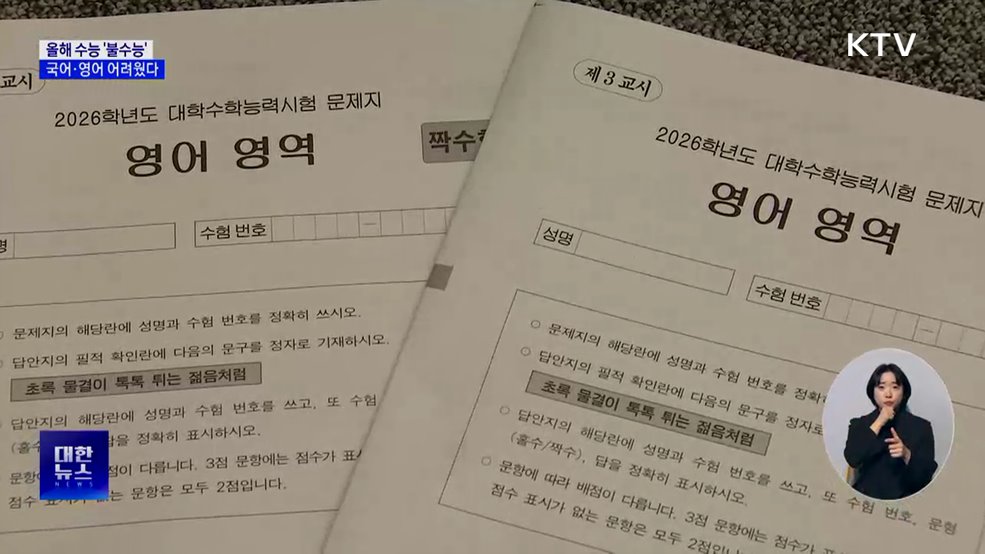 올해 수능 '불수능'
국어·영어 어려웠다
KTV
교시
2026학년도 대학수학능력시험 문제지
영어 영역
짝수
수험 번호
문제지의 해당란에 성명과 수험 번호를 정확히 쓰시오.
답안지의 필적 확인란에 다음의 문구를 정자로 기재하시오.
초록 물결이 톡톡 튀는 젊음처럼
답안지의 해당란에 성명과 수험 번호를 쓰고, 또 수험
답을 정확히 표시하시오.
다릅니다. 3점 문항에는 점수가
점수 없는 문항은 모두 2점입니다.
제 3 교시
2026학년도 대학수학능력시험 문제지
영어 영역
성명
수험 번호
○ 문제지의 해당란에 성명과 수험 번호를
○ 답안지의 필적 확인란에 다음의 문구를 정자로
초록 물결이 톡톡 튀는 젊음처럼
○ 답안지의 해당란에 성명과 수험 번호를 쓰고, 또 수험 번호, 문형
(홀수/짝수), 답을 정확히 표시하시오.
○ 문항에 따라 배점이 다릅니다. 3점 문항에는 점수가
점수 표시가 없는 문항은 모두 2점입니
대한
뉴스
NEWS